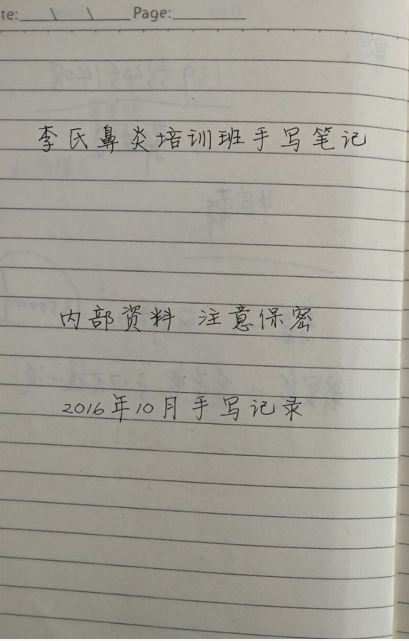 te: \ \ Page:
李氏鼻炎培训班手写笔记
内部资料 注意保密
2016年10月手写记录